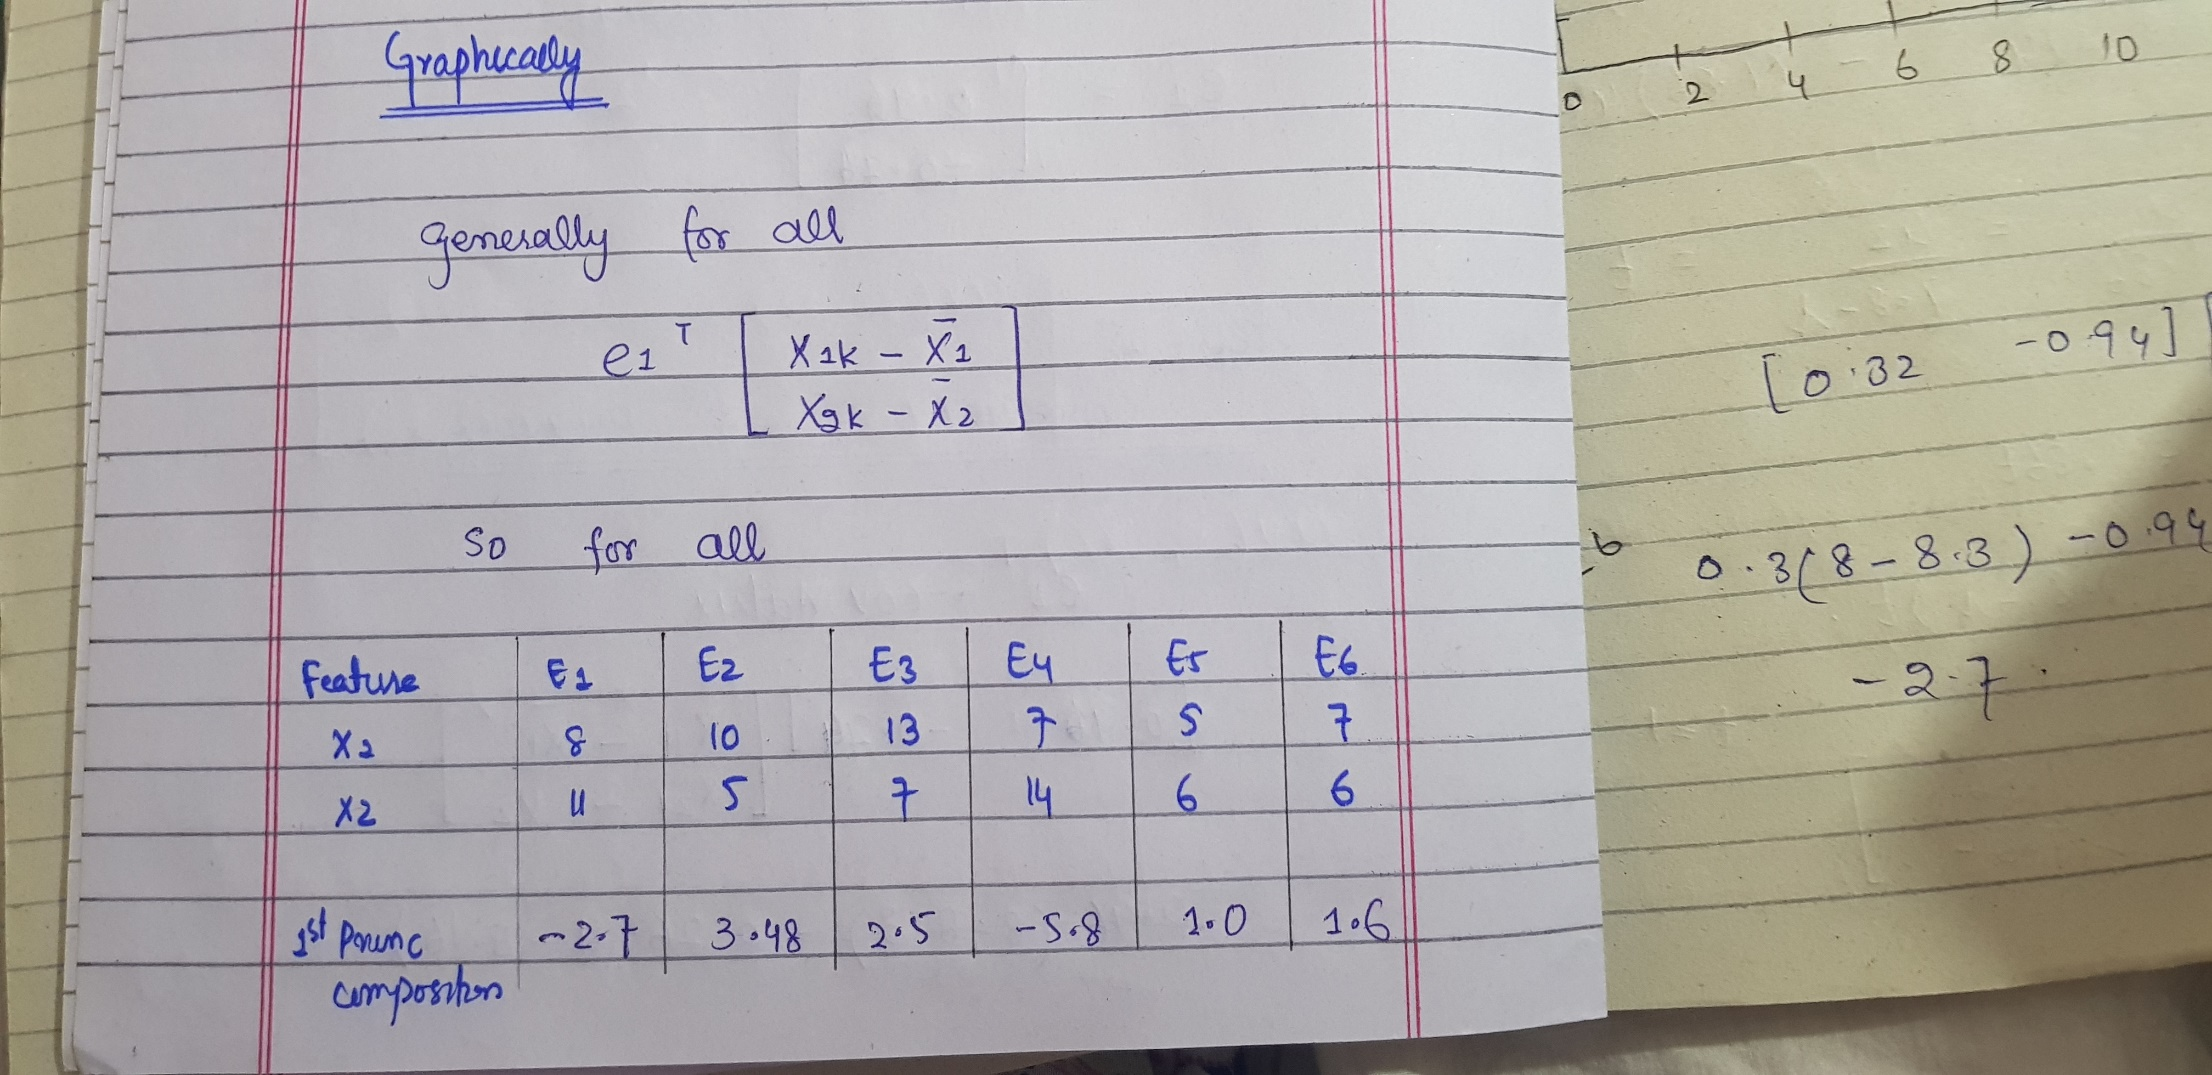 Graphically
generally for all
e1 T [ X1k - X̄1
X2k - X̄2 ]
so for all
Feature E1 E2 E3 E4 E5 E6
X1 8 10 13 7 5 7
X2 11 5 7 14 6 6
1st Princ -2.7 3.48 2.5 -5.8 1.0 1.6
composition
0 2 4 6 8 10
[0.32 -0.94]
0.3(8-8.3) -0.94
-2.7